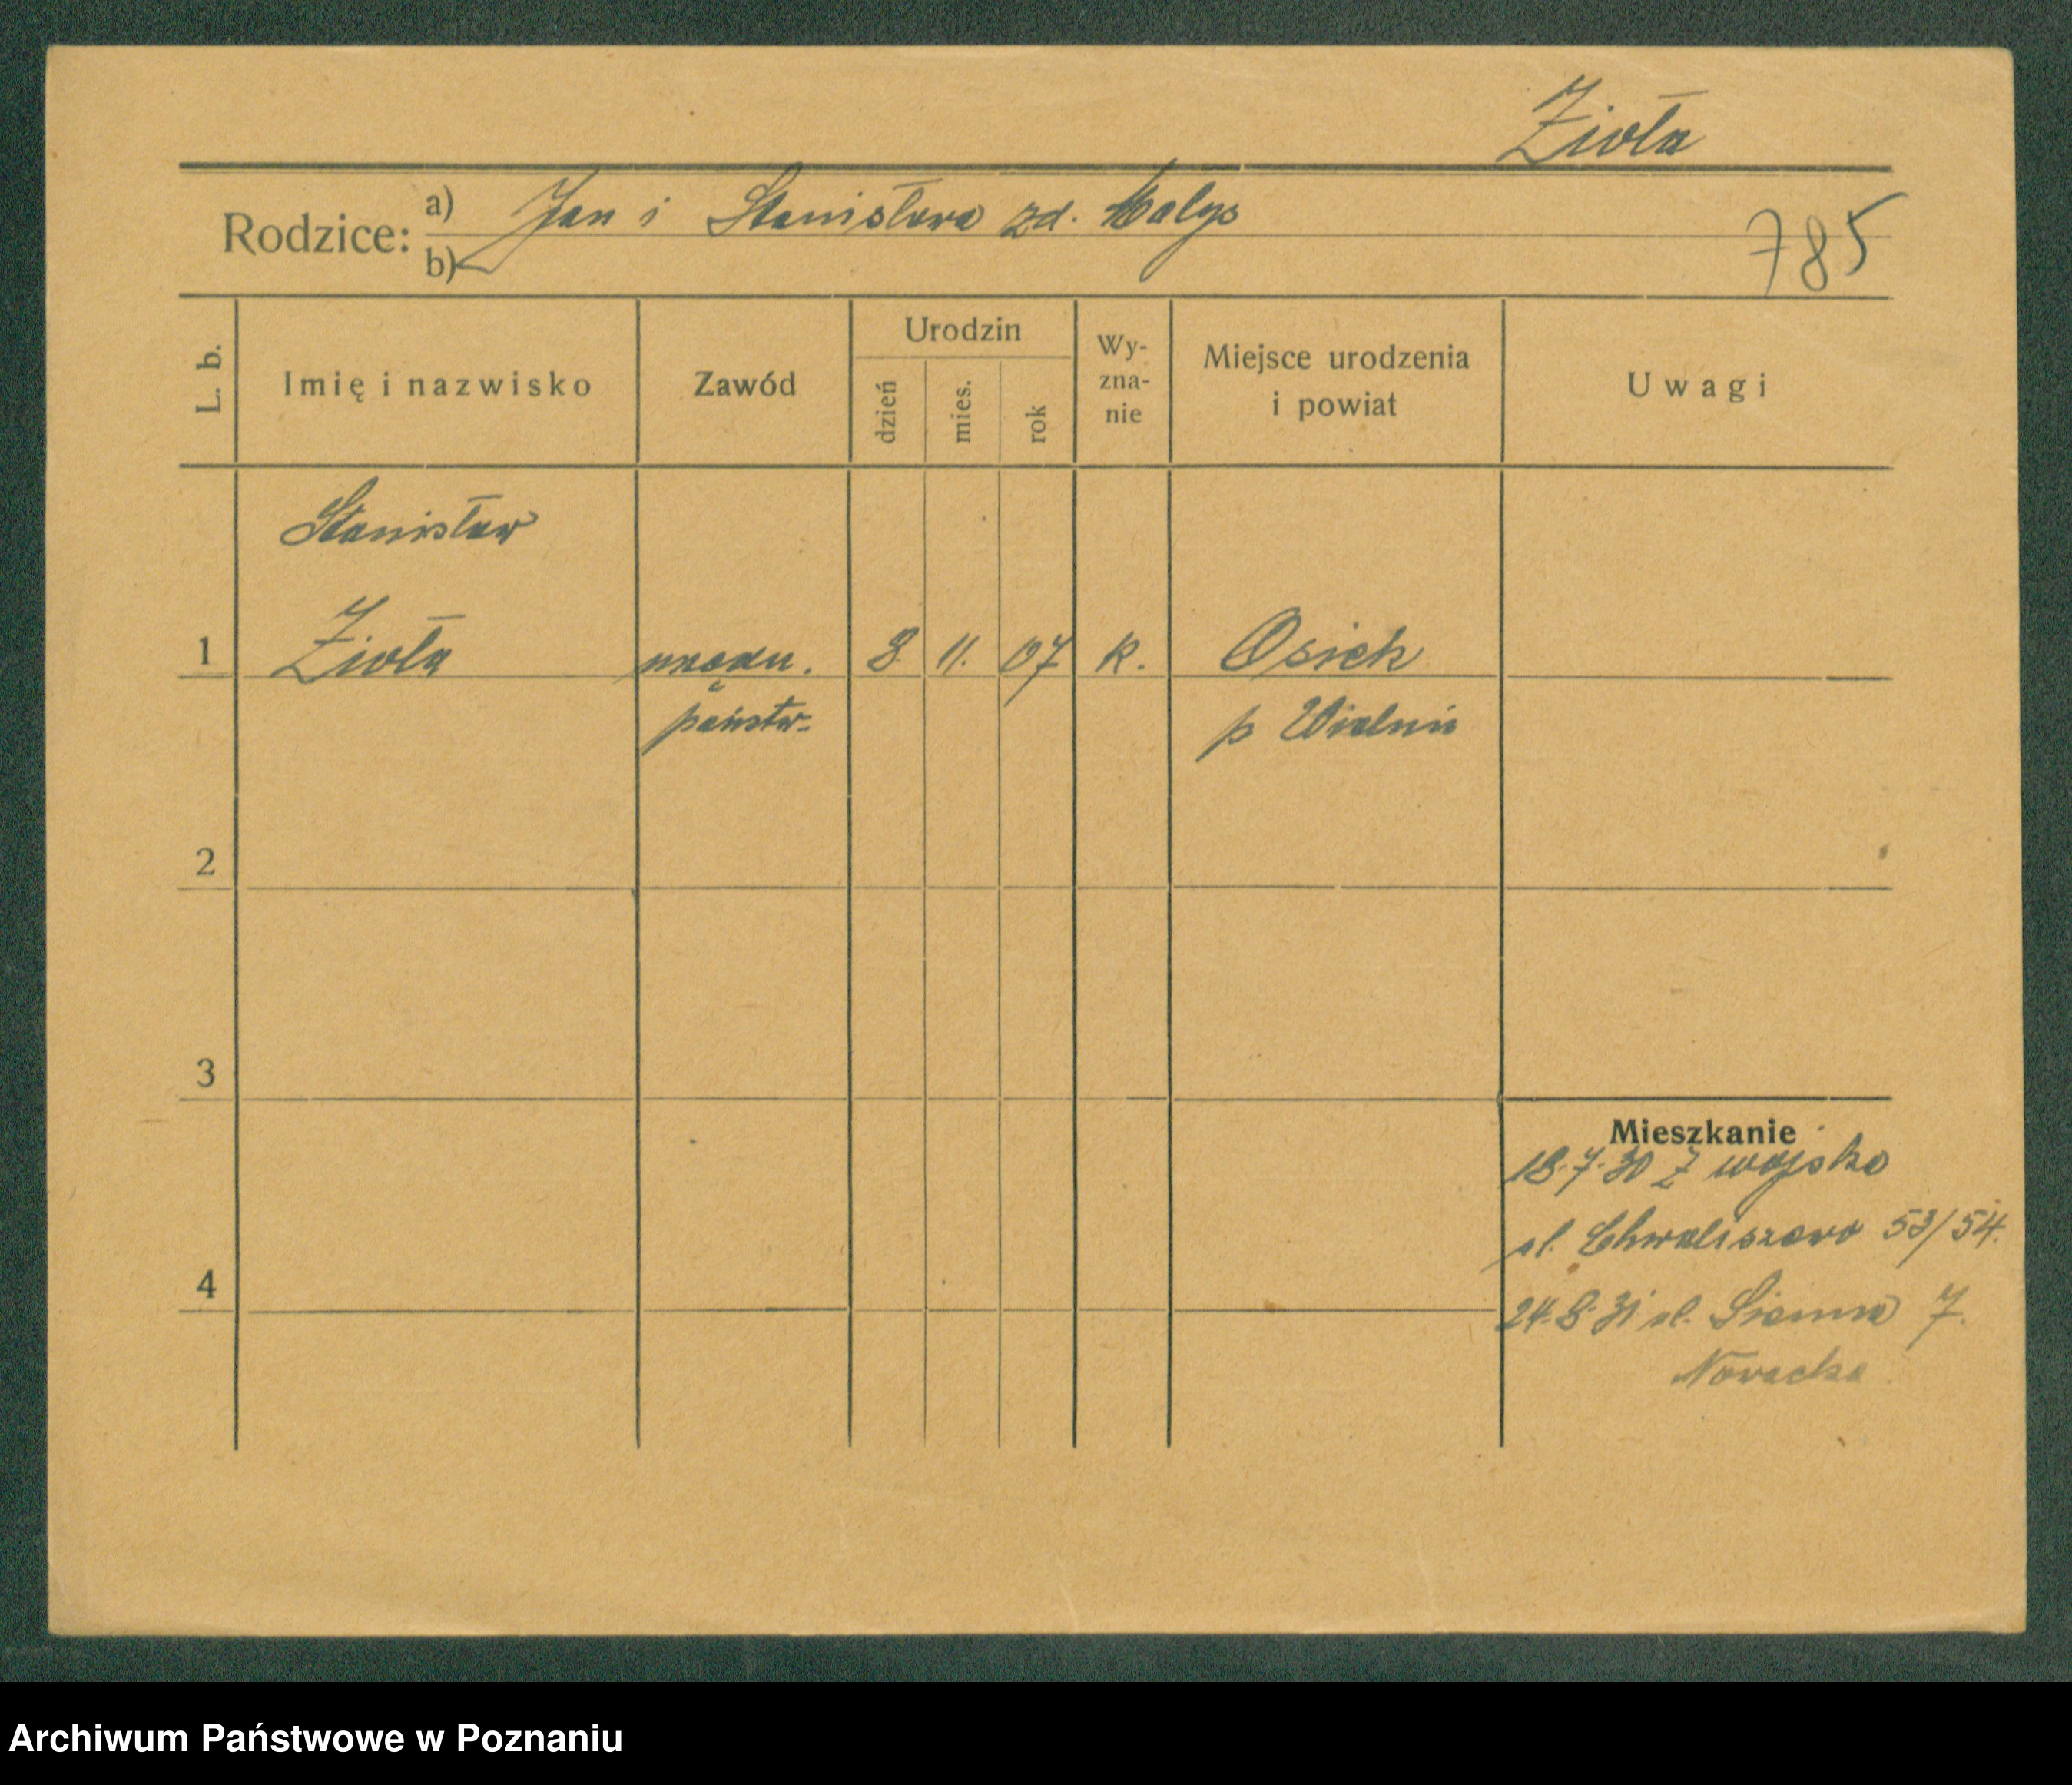 Zioła
Rodzice: a) Jan i Stanisława zd. Małys
b)
785
L. b.
Imię i nazwisko
Zawód
Urodzin
dzień
mies.
rok
Wy-
zna-
nie
Miejsce urodzenia
i powiat
Uwagi
Stanisław
1 Zioła urzędn. 8. 11. 07 k. Osiek
państw. p Wieluń
2
3
Mieszkanie
18.7.30 Z wojska
ul. Chwaliszewo 53/54.
4
24.8.31 ul. Sienna 7.
Nowacka
Archiwum Państwowe w Poznaniu